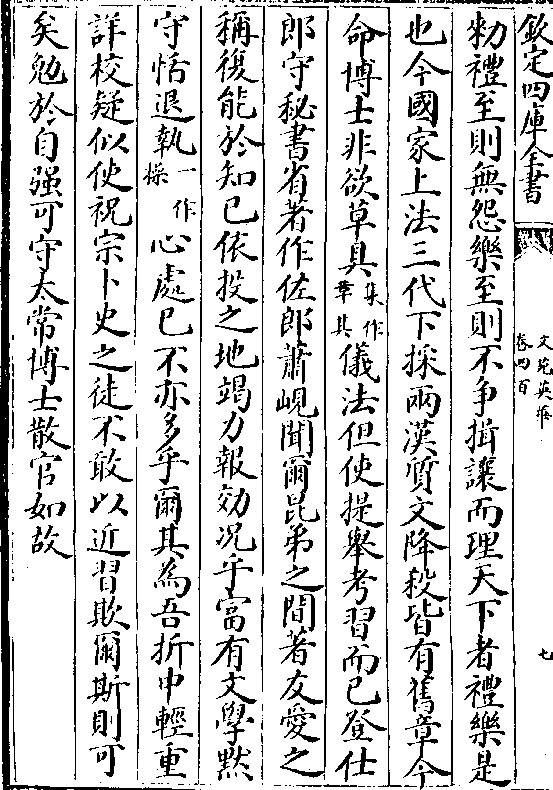 欽定四庫全書
文苑英華
卷四百
七
勑禮至則無怨樂至則不爭揖讓而理天下者禮樂是
也今國家上法三代下採兩漢質文降殺皆有舊章今
命博士非欲草具集作草其儀法但使提舉考習而已登仕
郎守秘書省著作佐郎蕭峴聞爾昆弟之間著友愛之
稱復能於知已依投之地竭力報効况乎富有文學黙
守恬退執一作操心處已不亦多乎爾其為吾折中輕重
詳校疑似使祝宗卜史之徒不敢以近習欺爾斯則可
矣勉於自强可守太常博士散官如故